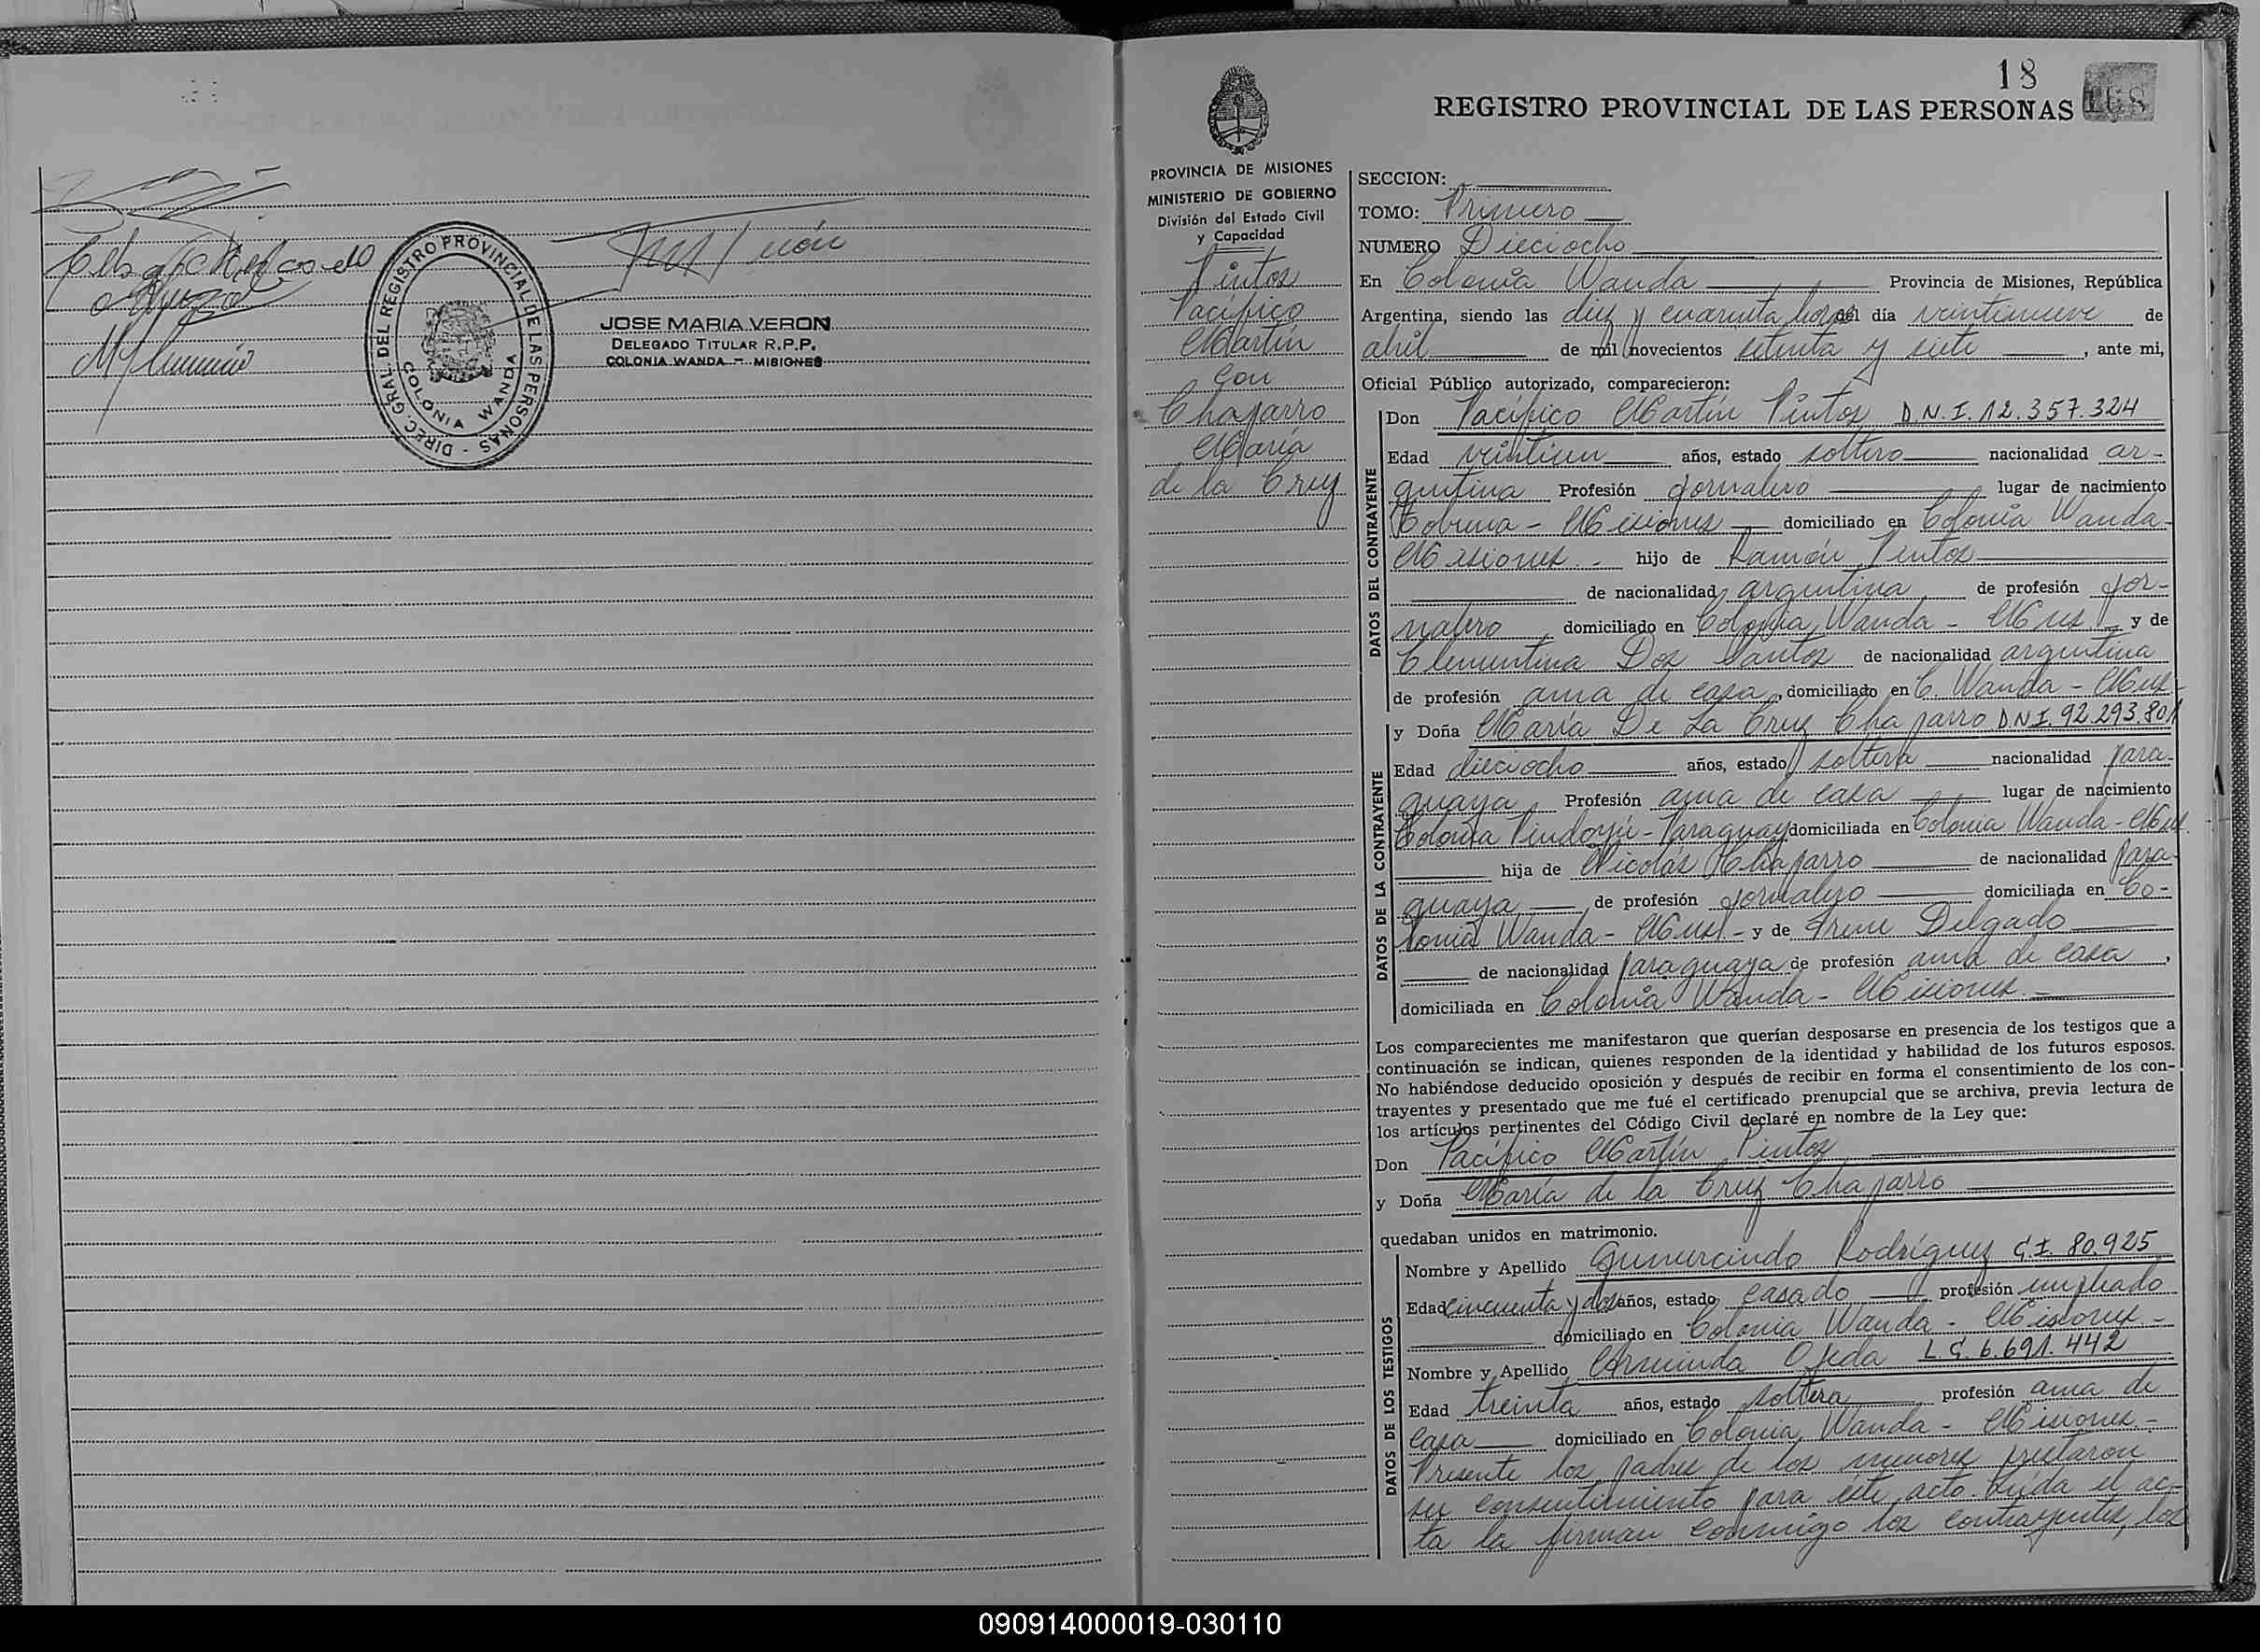 DIREC. GRAL. DEL REGISTRO PROVINCIAL DE LAS PERSONAS -
COLONIA WANDA
JOSE MARIA VERON
DELEGADO TITULAR R.P.P.
COLONIA WANDA - MISIONES
18
REGISTRO PROVINCIAL DE LAS PERSONAS
168
PROVINCIA DE MISIONES
MINISTERIO DE GOBIERNO
División del Estado Civil
y Capacidad
Pintos
Pacífico
Martín
con
Chaparro
María
de la Cruz
SECCION:
TOMO: Primero
NUMERO Dieciocho
En Colonia Wanda Provincia de Misiones, República
Argentina, siendo las diez y cuarenta horas del día veintinueve de
abril de mil novecientos setenta y siete, ante mi,
Oficial Público autorizado, comparecieron:
DATOS DEL CONTRAYENTE
Don Pacífico Martín Pintos D.N.I. 12.357.324
Edad veintiun años, estado soltero nacionalidad ar-
gentina Profesión jornalero lugar de nacimiento
- Misiones domiciliado en Colonia Wanda -
Misiones. - hijo de Ramón Pintos
de nacionalidad argentina de profesión jor-
nalero, domiciliado en Colonia Wanda - Mnes - y de
Clementina Dos Santos de nacionalidad argentina
de profesión ama de casa, domiciliado en C. Wanda - Mnes -
DATOS DE LA CONTRAYENTE
y Doña María De La Cruz Chaparro D.N.I. 92.293.801
Edad dieciocho años, estado soltera nacionalidad para-
guaya Profesión ama de casa lugar de nacimiento
Colonia Pindoyú - Paraguay domiciliada en Colonia Wanda - Mnes.
hija de Nicolás Chaparro de nacionalidad para-
guaya de profesión jornalero domiciliada en Co-
lonia Wanda - Mnes. - y de Irene Delgado
de nacionalidad paraguaya de profesión ama de casa,
domiciliada en Colonia Wanda - Misiones. -
Los comparecientes me manifestaron que querían desposarse en presencia de los testigos que a
continuación se indican, quienes responden de la identidad y habilidad de los futuros esposos.
No habiéndose deducido oposición y después de recibir en forma el consentimiento de los con-
trayentes y presentado que me fué el certificado prenupcial que se archiva, previa lectura de
los artículos pertinentes del Código Civil declaré en nombre de la Ley que:
Don Pacífico Martín Pintos
y Doña María de la Cruz Chaparro
quedaban unidos en matrimonio.
DATOS DE LOS TESTIGOS
Nombre y Apellido Gumercindo Rodríguez C.I. 80.925
Edad cincuenta y dos años, estado casado profesión empleado
domiciliado en Colonia Wanda - Misiones -
Nombre y Apellido Erminda Ojeda L.C. 6.691.442
Edad treinta años, estado soltera profesión ama de
casa domiciliado en Colonia Wanda - Misiones -
Presente los padres de los menores prestaron
su consentimiento para éste acto. Leída el ac-
ta la firman conmigo los contrayentes, los
090914000019-030110